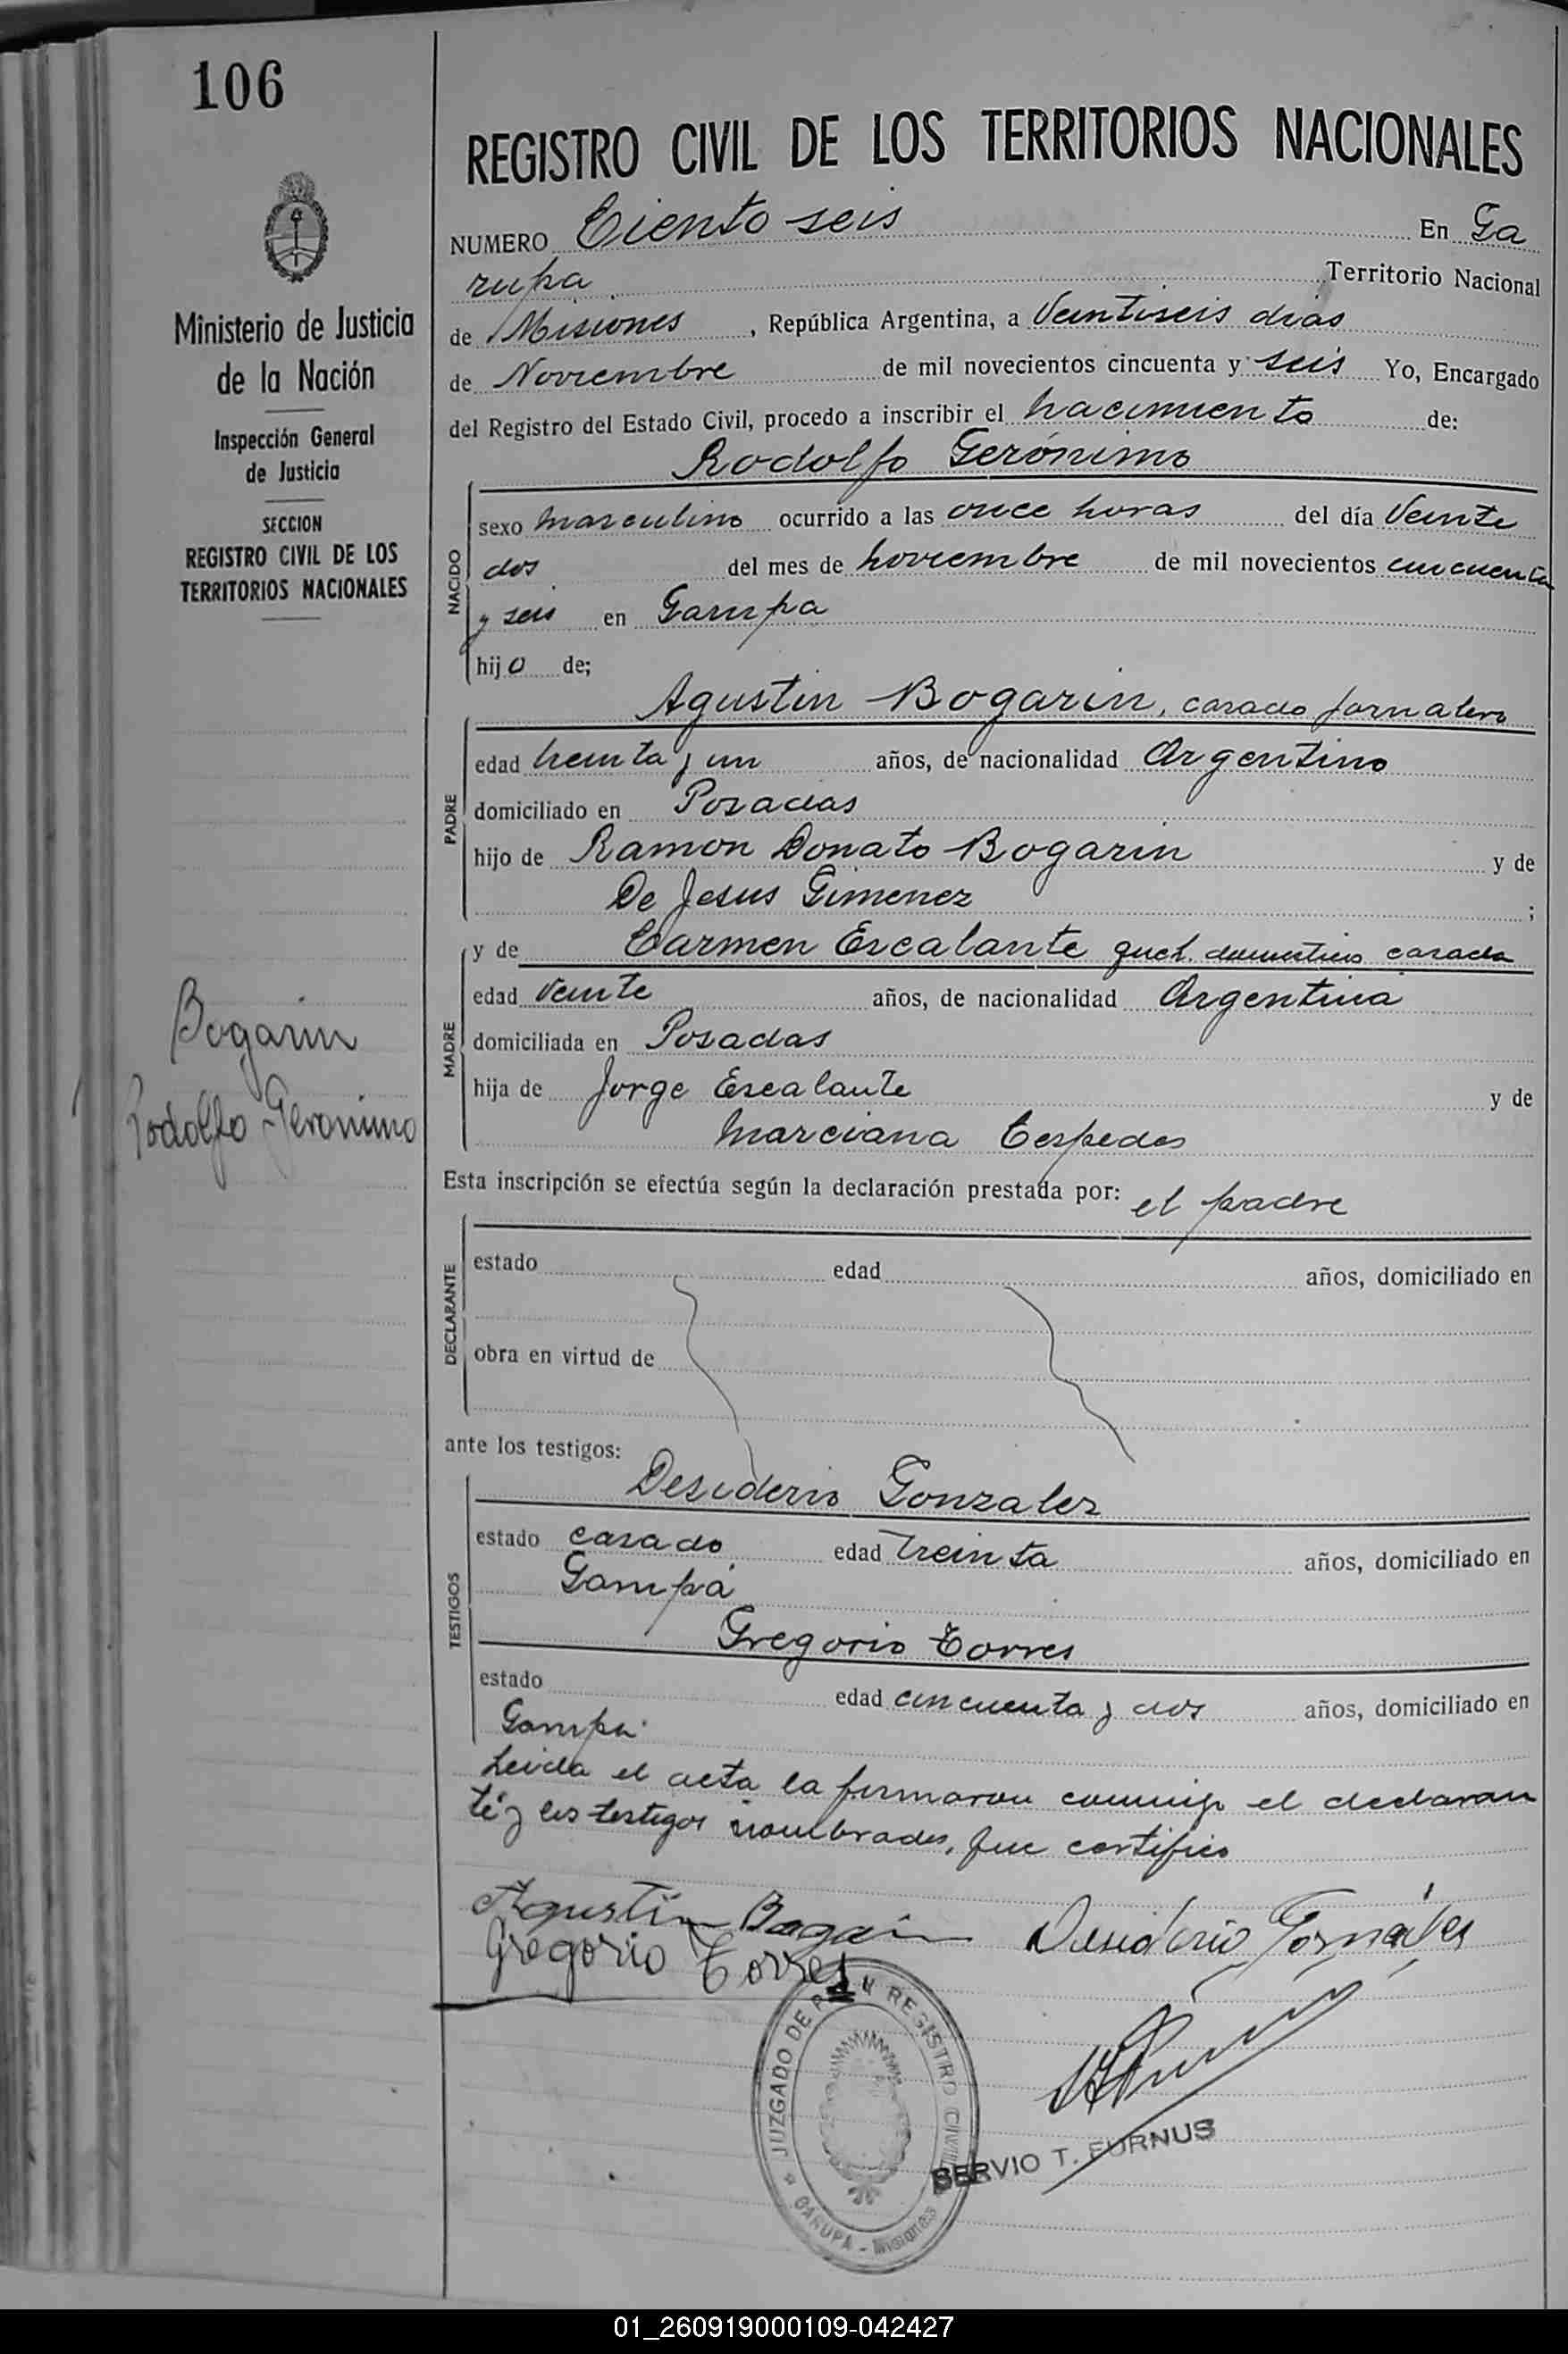 106
Ministerio de Justicia
de la Nación
Inspección General
de Justicia
SECCION
REGISTRO CIVIL DE LOS
TERRITORIOS NACIONALES
Bogarin
Rodolfo Geronimo
REGISTRO CIVIL DE LOS TERRITORIOS NACIONALES
NUMERO Ciento seis En Ga
rupa Territorio Nacional
de Misiones, República Argentina, a Veintiseis dias
de Noviembre de mil novecientos cincuenta y seis Yo, Encargado
del Registro del Estado Civil, procedo a inscribir el nacimiento de:
Rodolfo Gerónimo
NACIDO
sexo masculino ocurrido a las once horas del día Veinte
dos del mes de noviembre de mil novecientos cincuenta
y seis en Garupa
hijo de;
Agustin Bogarin, casado jornalero
PADRE
edad treinta y un años, de nacionalidad Argentino
domiciliado en Posadas
hijo de Ramon Donato Bogarin y de
De Jesus Gimenez ;
y de Carmen Escalante queh. domesticos casada
MADRE
edad veinte años, de nacionalidad Argentina
domiciliada en Posadas
hija de Jorge Escalante y de
Marciana Cespedes
Esta inscripción se efectúa según la declaración prestada por: el padre
DECLARANTE
estado edad años, domiciliado en
obra en virtud de
ante los testigos:
Desiderio Gonzalez
TESTIGOS
estado casado edad treinta años, domiciliado en
Garupá
Gregorio Torres
estado edad cincuenta y dos años, domiciliado en
Garupa
Leida el acta la firmaron conmigo el declaran
te y los testigos nombrados, que certifico
Agustín Bogarin Desiderio Gonzalez
Gregorio Torres
JUZGADO DE PAZ Y REGISTRO CIVIL
GARUPA - Misiones
SERVIO T. FURNUS
01_260919000109-042427